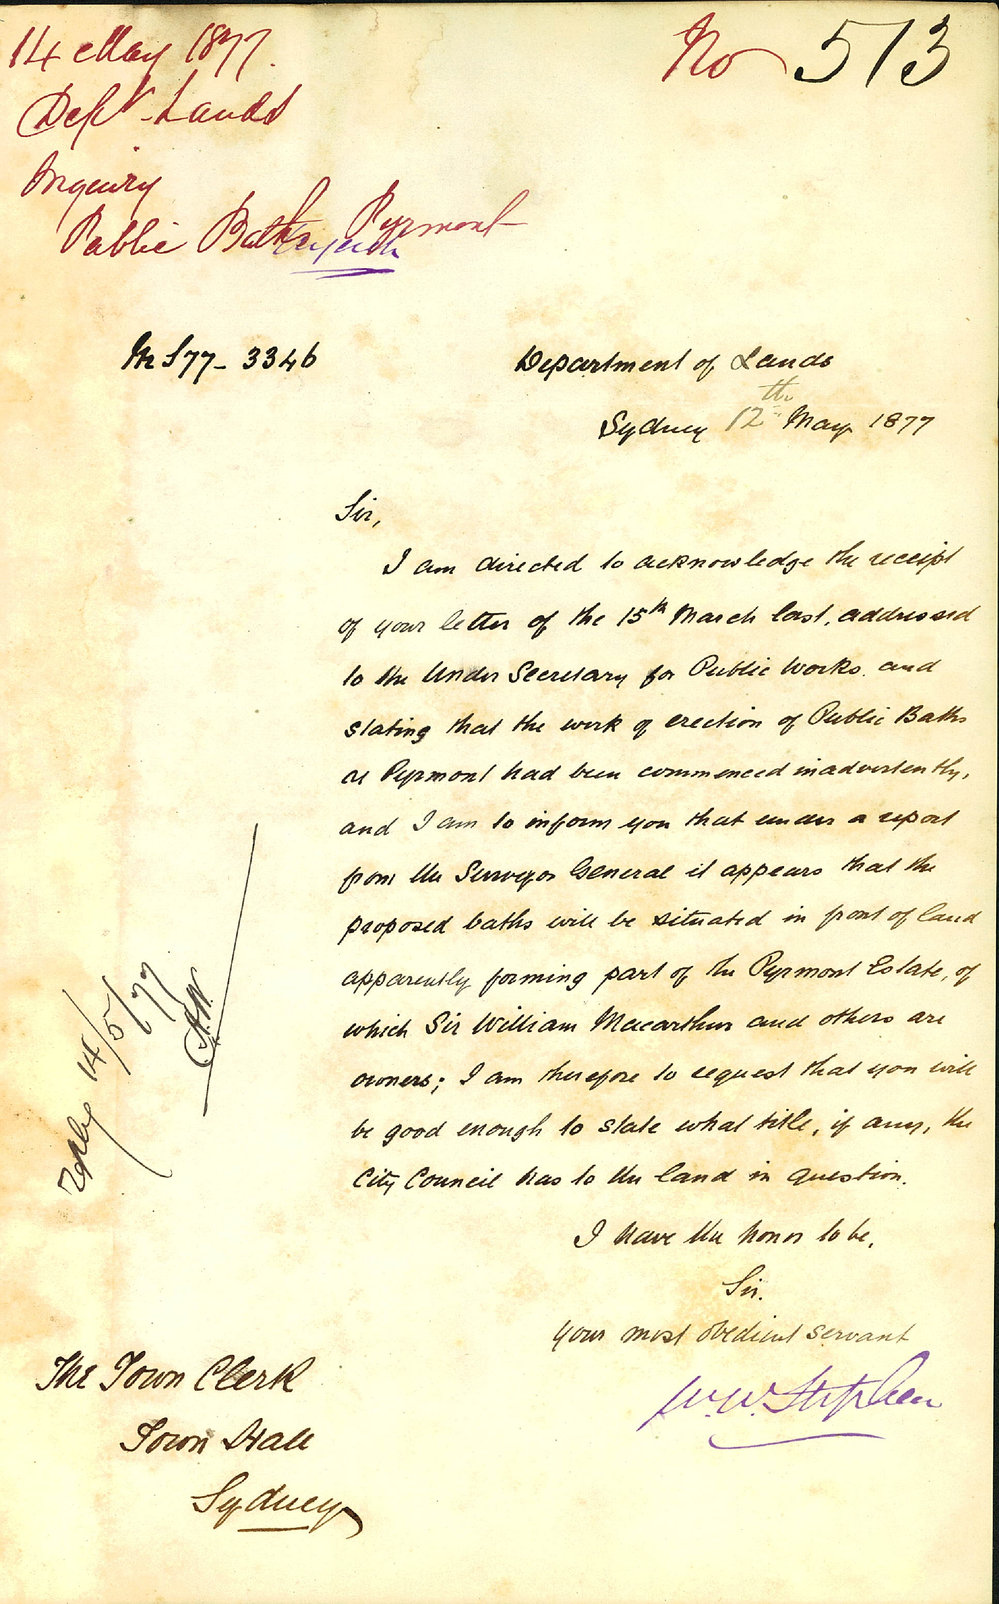 14 May 1877.
No 513
Dept Lands
Inquiry
Public Baths Pyrmont
Ms 77-3346
Department of Lands
Sydney 12th May 1877
Sir,
I am directed to acknowledge the receipt
of your letter of the 15th March last, addressed
to the Under Secretary for Public Works. and
stating that the work of erection of Public Baths
at Pyrmont had been commenced inadvertently,
and I am to inform you that under a report
from the Surveyor General it appears that the
proposed baths will be situated in front of land
apparently forming part of the Pyrmont Estate, of
which Sir William Macarthur and others are
owners; I am therefore to request that you will
be good enough to state what title, if any, the
City Council has to the land in question.
I have the honor to be,
Sir.
Your most obedient servant
W. W. Stephen
The Town Clerk
Town Hall
Sydney
Reply 14/5/77